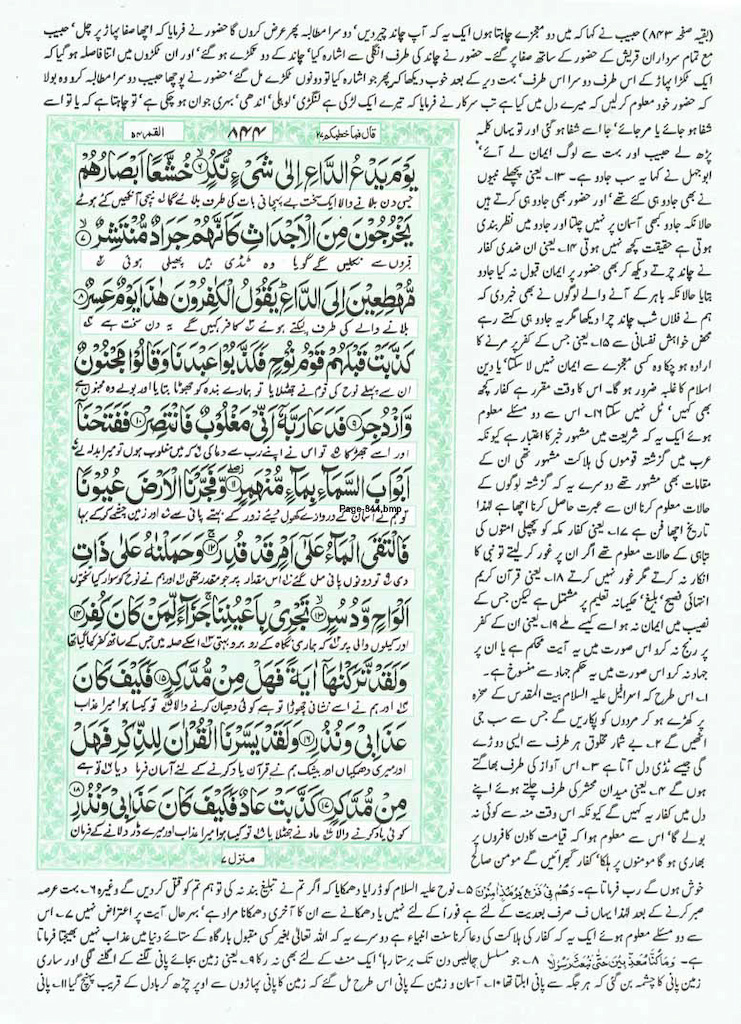 (بقیہ صفحہ ۸۴۳) حبیب نے کہا کہ میں دو معجزے چاہتا ہوں ایک یہ کہ آپ چاند چیر دیں' دوسرا مطالبہ پھر عرض کروں گا حضور نے فرمایا کہ اچھا صفا پہاڑ پر چل' حبیب
مع تمام سرداران قریش کے حضور کے ساتھ صفا پر گئے۔ حضور نے چاند کی طرف انگلی سے اشارہ کیا' چاند کے دو ٹکڑے ہو گئے' اور ان ٹکڑوں میں اتنا فاصلہ ہو گیا کہ
ایک ٹکڑا پہاڑ کے اس طرف دوسرا اس طرف' بہت دیر کے بعد خوب دیکھا کہ پھر جو اشارہ کیا تو دونوں ٹکڑے مل گئے' حضور نے پوچھا حبیب دوسرا مطالبہ کرو وہ بولا
کہ حضور خود معلوم کر لیں کہ میرے دل میں کیا ہے تب سرکار نے فرمایا کہ تیرے ایک لڑکی ہے لنگڑی' لولی' اندھی' بہری جوان ہو چکی ہے' تو چاہتا ہے کہ یا تو اسے
شفا ہو جائے یا مر جائے' جا اسے شفا ہو گئی اور تو یہاں کلمہ
پڑھ لے حبیب اور بہت سے لوگ ایمان لے آئے'
ابوجہل نے کہا یہ سب جادو ہے۔ ۱۳۔ یعنی پچھلے نبیوں
نے بھی جادو ہی کئے تھے' اور حضور بھی جادو ہی کرتے ہیں
حالانکہ جادو کبھی آسمان پر نہیں چلتا اور جادو میں نظر بندی
ہوتی ہے حقیقت کچھ نہیں ہوتی ۱۴۔ یعنی ان ضدی کفار
نے چاند چرتے دیکھ کر بھی حضور پر ایمان قبول نہ کیا جادو
بتایا حالانکہ باہر کے آنے والے لوگوں نے بھی خبر دی کہ
ہم نے فلاں شب چاند چرا دیکھا مگر یہ جادو ہی کہتے رہے
محض خواہش نفسانی سے ۱۵۔ یعنی جس کے کفر پر مرنے کا
ارادہ ہو چکا وہ کسی معجزے سے ایمان نہیں لا سکتا' یا دین
اسلام کا غلبہ ضرور ہو گا۔ اس کا وقت مقرر ہے کفار کچھ
بھی کہیں' ٹل نہیں سکتا ۱۶۔ اس سے دو مسئلے معلوم
ہوئے ایک یہ کہ شریعت میں مشہور خبر کا اعتبار ہے کیونکہ
عرب میں گزشتہ قوموں کی ہلاکت مشہور تھی ان کے
مقامات بھی مشہور تھے دوسرے یہ کہ گزشتہ لوگوں کے
حالات معلوم کرنا ان سے عبرت حاصل کرنا اچھا ہے لہٰذا
تاریخ اچھا فن ہے ۱۷۔ یعنی کفار مکہ کو پچھلی امتوں کی
تباہی کے حالات معلوم تھے اگر ان پر غور کر لیتے تو نبی کا
انکار نہ کرتے مگر غور نہیں کرتے ۱۸۔ یعنی قرآن کریم
انتہائی فصیح' بلیغ' حکیمانہ تعلیم پر مشتمل ہے لیکن جس کے
نصیب میں ایمان نہ ہو اسے کیسے ملے ۱۹۔ یعنی ان کے کفر
پر رنج نہ کرو اس صورت میں یہ آیت محکم ہے یا ان پر
جہاد نہ کرو اس صورت میں یہ حکم جہاد سے منسوخ ہے۔
۱۔ اس طرح کہ اسرافیل علیہ السلام بیت المقدس کے صخرہ
پر کھڑے ہو کر مردوں کو پکاریں گے جس سے سب جی
اٹھیں گے ۲۔ بے شمار مخلوق ہر طرف سے ایسی دوڑے
گی جیسے ٹڈی دل آتا ہے ۳۔ اس آواز کی طرف بھاگتے
ہوں گے ۴۔ یعنی میدان محشر کی طرف چلتے ہوئے اپنے
دل میں کفار یہ کہیں گے کیونکہ اس وقت منہ سے کوئی نہ
بولے گا' اس سے معلوم ہوا کہ قیامت کا دن کافروں پر
بھاری ہو گا مومنوں پر ہلکا' کفار گھبرائیں گے مومن صالح
القمر ۵۴
۸۴۴
قال فما خطبکم ۲۷
يَوْمَ يَدْعُ الدَّاعِ اِلٰى شَىْءٍ نُّكُرٍ ۶ خُشَّعًا اَبْصَارُهُمْ
جس دن بلانے والا ایک سخت بے پہچانی بات کی طرف بلائے گا نیچی آنکھیں کئے ہوئے
يَخْرُجُوْنَ مِنَ الْاَجْدَاثِ كَاَنَّهُمْ جَرَادٌ مُّنْتَشِرٌ ۷
قبروں سے نکلیں گے گویا وہ ٹڈی ہیں پھیلی ہوئی
مُّهْطِعِيْنَ اِلَى الدَّاعِ يَقُوْلُ الْكٰفِرُوْنَ هٰذَا يَوْمٌ عَسِرٌ ۸
بلانے والے کی طرف لپکتے ہوئے کافر کہیں گے یہ دن سخت ہے
كَذَّبَتْ قَبْلَهُمْ قَوْمُ نُوْحٍ فَكَذَّبُوْا عَبْدَنَا وَقَالُوْا مَجْنُوْنٌ
ان سے پہلے نوح کی قوم نے جھٹلایا تو ہمارے بندہ کو جھوٹا بتایا اور بولے وہ مجنون ہے
وَّازْدُجِرَ ۹ فَدَعَا رَبَّهٗٓ اَنِّىْ مَغْلُوْبٌ فَانْتَصِرْ ۱۰ فَفَتَحْنَآ
اور اسے جھڑکا تو اس نے اپنے رب سے دعا کی کہ میں مغلوب ہوں تو میرا بدلہ لے
اَبْوَابَ السَّمَآءِ بِمَآءٍ مُّنْهَمِرٍ ۱۱ وَّفَجَّرْنَا الْاَرْضَ عُيُوْنًا
تو ہم نے آسمان کے دروازے کھول دیئے زور کے بہتے پانی سے اور زمین چشمے کر کے بہا
Page-844.bmp
فَالْتَقَى الْمَآءُ عَلٰٓى اَمْرٍ قَدْ قُدِرَ ۱۲ وَحَمَلْنٰهُ عَلٰى ذَاتِ
دی تو دونوں پانی مل گئے اس مقدار پر جو مقدر تھی اور ہم نے نوح کو سوار کیا تختوں
اَلْوَاحٍ وَّدُسُرٍ ۱۳ تَجْرِىْ بِاَعْيُنِنَا جَزَآءً لِّمَنْ كَانَ كُفِرَ ۱۴
اور کیلوں والی پر کہ ہماری نگاہ کے روبرو بہتی اس کے صلہ میں جس کے ساتھ کفر کیا گیا تھا
وَلَقَدْ تَّرَكْنٰهَآ اٰيَةً فَهَلْ مِنْ مُّدَّكِرٍ ۱۵ فَكَيْفَ كَانَ
اور ہم نے اسے نشانی چھوڑا تو ہے کوئی دھیان کرنے والا تو کیسا ہوا میرا عذاب
عَذَابِىْ وَنُذُرِ ۱۶ وَلَقَدْ يَسَّرْنَا الْقُرْاٰنَ لِلذِّكْرِ فَهَلْ
اور میری دھمکیاں اور بیشک ہم نے قرآن یاد کرنے کے لئے آسان فرما دیا تو ہے
مِنْ مُّدَّكِرٍ ۱۷ كَذَّبَتْ عَادٌ فَكَيْفَ كَانَ عَذَابِىْ وَنُذُرِ ۱۸
کوئی یاد کرنے والا عاد نے جھٹلایا تو کیسا ہوا میرا عذاب اور میرے ڈر دلانے کے فرمان
منزل ۷
خوش ہوں گے رب فرماتا ہے۔ وَهُمْ مِّنْ فَزَعٍ يَّوْمَئِذٍ اٰمِنُوْنَ ۵۔ نوح علیہ السلام کو ڈرایا دھمکایا کہ اگر تم نے تبلیغ بند نہ کی تو ہم تم کو قتل کر دیں گے وغیرہ ۶۔ بہت عرصہ
صبر کرنے کے بعد لہٰذا یہاں ف صرف بعدیت کے لئے ہے فوراً کے لئے نہیں یا دھمکانے سے ان کا آخری دھمکانا مراد ہے' بہر حال آیت پر اعتراض نہیں ۷۔ اس
سے دو مسئلے معلوم ہوئے ایک یہ کہ کفار کی ہلاکت کی دعا کرنا سنت انبیاء ہے دوسرے یہ کہ اللہ تعالیٰ بغیر کسی مقبول بارگاہ کے ستائے دنیا میں عذاب نہیں بھیجتا فرماتا
ہے۔ وَمَا كُنَّا مُعَذِّبِيْنَ حَتّٰى نَبْعَثَ رَسُوْلًا ۸۔ جو مسلسل چالیس دن تک برستا رہا' ایک منٹ کے لئے بھی نہ رکا ۹۔ یعنی زمین بجائے پانی نگلنے کے اگلنے لگی اور ساری
زمین پانی کا چشمہ بن گئی کہ ہر جگہ سے پانی ابلتا تھا ۱۰۔ آسمان و زمین کے پانی اس طرح مل گئے کہ زمین کا پانی پہاڑوں سے اوپر چڑھ کر بادل کے قریب پہنچ گیا ۱۱۔ پانی